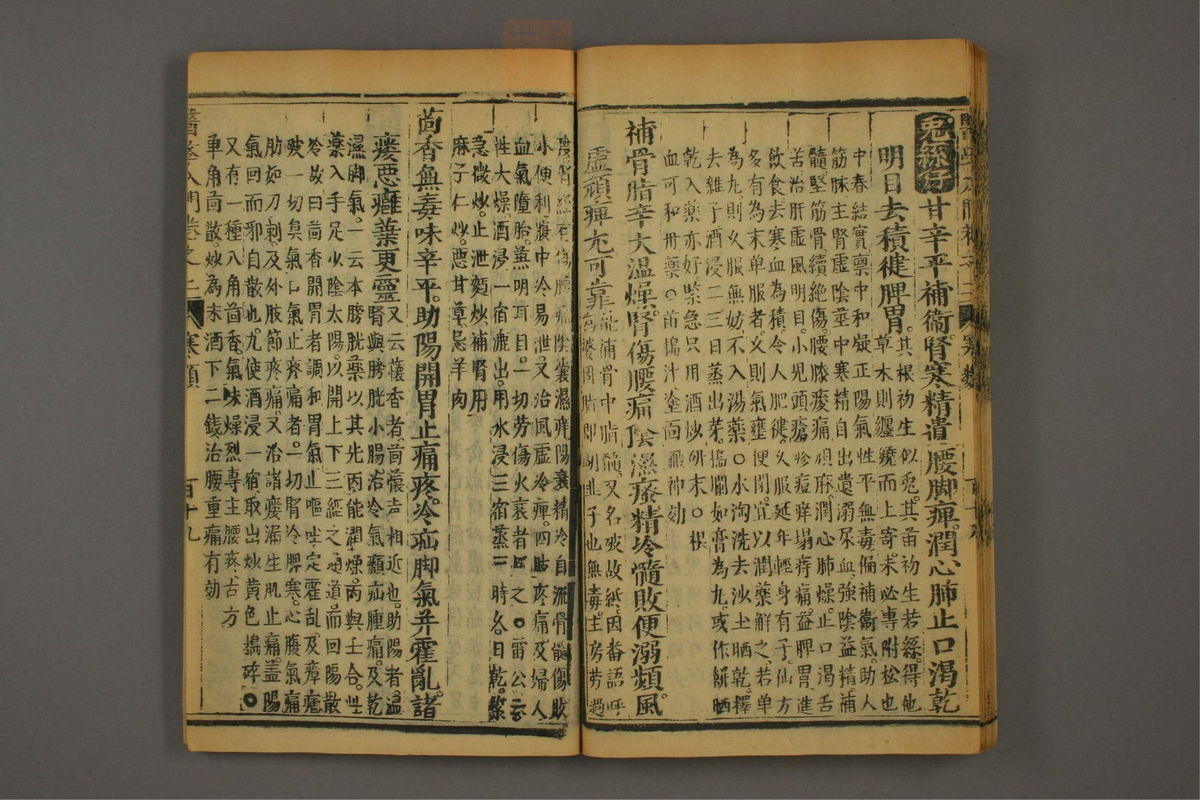 兔絲子甘辛平補衛腎寒精遺腰脚痺潤心肺止口渴乾
明目去積健脾胃其根初生似兎其苗初生若絲得他
草木則纏繞而上寄不必專附松也
中春結實禀中和凝正陽氣性平無毒偏補衛氣助人
筋脉主腎虛陰莖中寒精自出遺溺尿血強陰益精補
髓堅筋骨續絕傷腰膝痠痛頑麻潤心肺燥止口渴舌
苦治肝虛風明目小兒頭瘡疹痘痒塌痔痛益脾胃進
飲食去寒血為積令人肥健久服延年輕身有子仙方
多有為末單服者久則氣壅便閉宜以潤藥解之若單
為丸則久服無妨不入湯藥○水淘洗去沙土晒乾擇
去雜子酒浸二三日蒸出芽搗爛如膏為丸或作餅晒
乾入藥亦好緊急只用酒炒研末○根
血可和丹藥○苗搗汁塗面䵟神効
補骨脂辛大溫燥腎傷腰痛陰濕痒精冷髓敗便溺頻風
虛頑痺尤可靠能補骨中脂髓又名破故紙因番語呼
為婆固脂即胡韭子也無毒主房劳過
度腎經有傷腰痛陰囊濕痒陽衰精冷自流骨髓傷敗
小便利腹中冷易泄又治風虛冷痺四肢疼痛及婦人
血氣墮胎兼明耳目一切劳傷火衰者用之○雷公云
性大燥酒浸一宿漉出用水浸三宿蒸三時久日乾緊
急微炒止泄麪炒補腎用
麻子仁炒惡甘草忌羊肉
茴香無毒味辛平助陽開胃止痛疼冷疝脚氣并霍亂諸
瘻惡癰葉更靈又云蘹香者茴蘹声相近也助陽者溫
腎與膀胱小腸治冷氣㿗疝腫痛及乾
濕脚氣一云本膀胱藥以其先丙能潤燥丙與壬合㞢
藥入手足少陰太陽以開上下三經之通道而回陽散
冷故曰茴香開胃者調和胃氣止嘔吐定霍乱及瘴瘧
破一切臭氣口氣止疼痛者一切腎冷脾寒心腹氣痛
肋如刀刺及外肢節疼痛又治諸瘻漏生肌止痛盖陽
氣回而邪自散也尤使酒浸一宿取出炒黄色搗碎○
又有一種八角茴香氣味燥烈專主腰疼古方
車角茴散炒為末酒下二錢治腰重痛有効
醫學入門卷之二 寒類 百十九